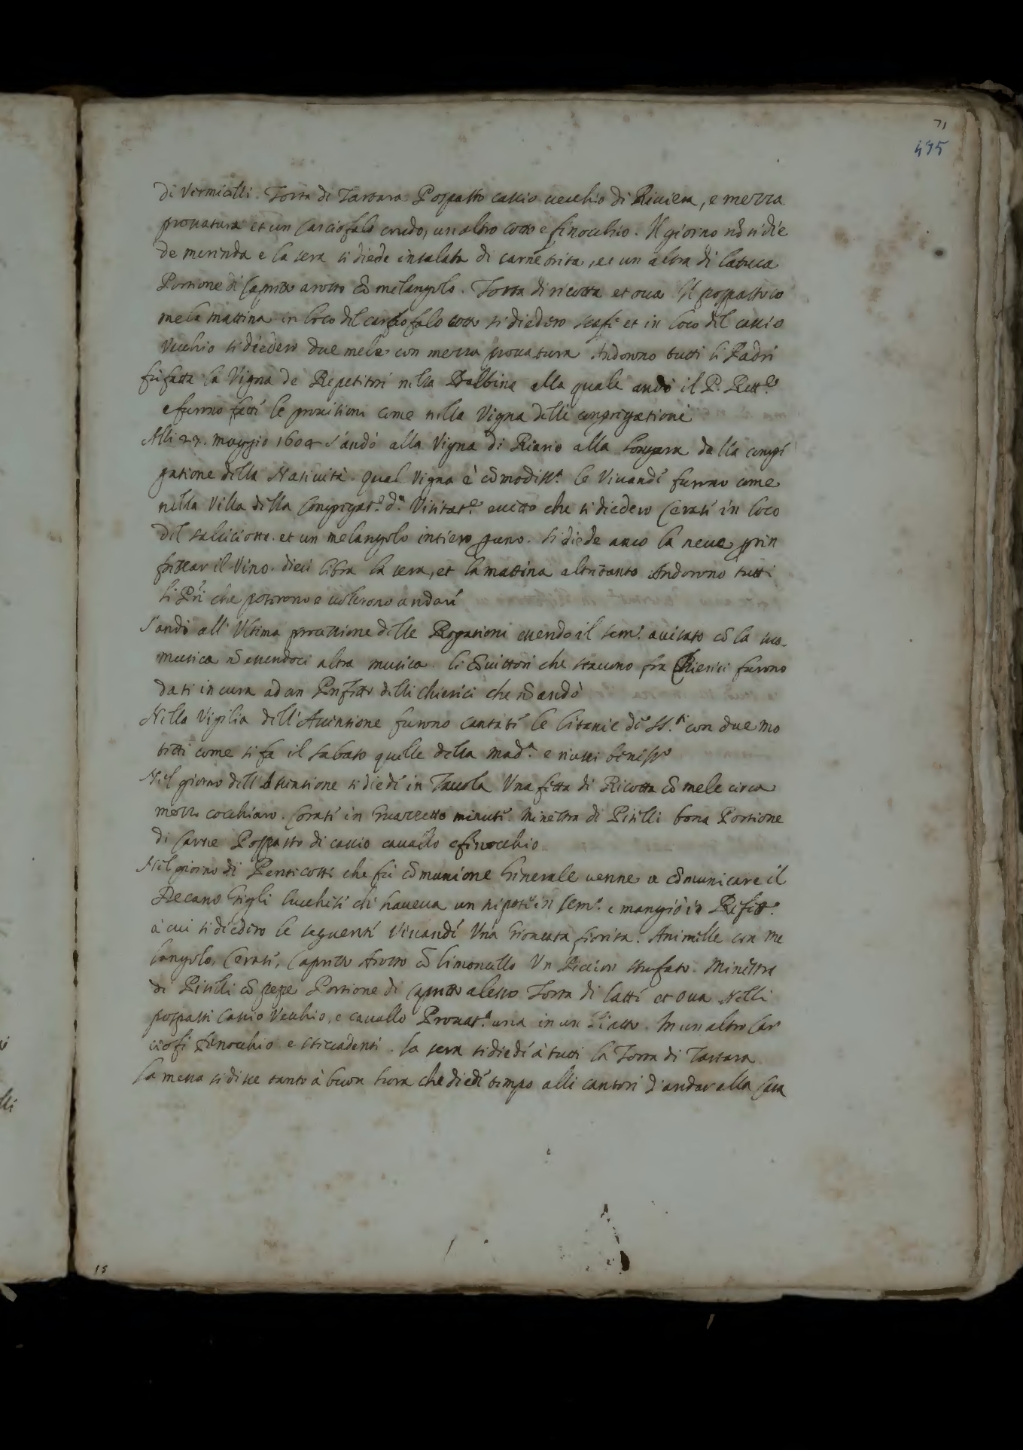 71
495
di Vermicelli. Torta di Tartara Pospasto cascio vecchio di Riviera, e mezza
provatura et un Carciofalo crudo, un altro cotto e finocchio. Il giorno nõ si die
de merenda e la sera si diede insalata di carne trita, et un altra di lattuca
Portione di Capretto arosto cõ melangolo. Torta di ricotta et ova Il pospasto co
me la mattina in loco del carciofalo cotto si diedero scafi et in loco del cascio
Vecchio si diedero due mele con mezza provatura Andorono tutti li Padri
fu fatta la Vigna de Repetitori nella Balbina alla quale andò il P. Rett.e
e furno fatti le provisioni come nella Vigna delle congregatione
Alli 27. maggio 1604 s'andò alla Vigna di Riario alla longara dalla congre
gatione della Natività. qual vigna è cõmodiss.a le Vivande furono come
nella Villa della Congregat.e d.a Visitat.e eccetto che si diedero Cerati in loco
del salciciotto. et un melangolo intiero p uno. si diede anco la neve p rin
frescar il Vino. dieci libra la sera, et la mattina altritanto Andorono tutti
li P̃ri che potettero e volsero andare
S'andò all'Ultima processione delle Rogationi essendo il sem.o avisato cõ la sua
musica nõ essendoci altra musica li cõvittori che stavono fra Chierici furono
dati in cura ad un Prefetto delli chierici che nõ andò
Nella Vigilia dell'Ascentione furono cantati le litanie de SS.ti con due mo
tetti come si fa il sabato quelle della Mad.a e riuscì beniss.o
Nel giorno dell'Ascentione si diede in Tavola Una fetta di Ricotta cõ mele circa
mezzo cocchiaro. Cerati in Guazzetto minuti Minestra di Piselli bona Portione
di Carne Pospasto di cascio cavallo e finocchio
Nel giorno di Pentecoste che fù cõmunione Generale venne a cõmunicare il
Decano Gigli lucchese che haveva un nipote in sem.o e mangiò in Refett.o
à cui si diedero le seguenti Vivande Una Gioncata fiorita. Animelle con me
langolo, Cerati, Capretto arosto cõ limoncello Un Piccion stufato. Minestra
di Piselli cõ pepe Portione di capretto alesso Torta di latte et ova Nelli
pospasti Cascio Vecchio, e cavallo Provat.a una in un Piatto. In un altro Car
ciofi finocchio e sticcadenti. la sera si diede à tutti la Torta di Tartara
La messa si disse tanto à buon hora che diede tempo alli cantori d'andar alla sua
15